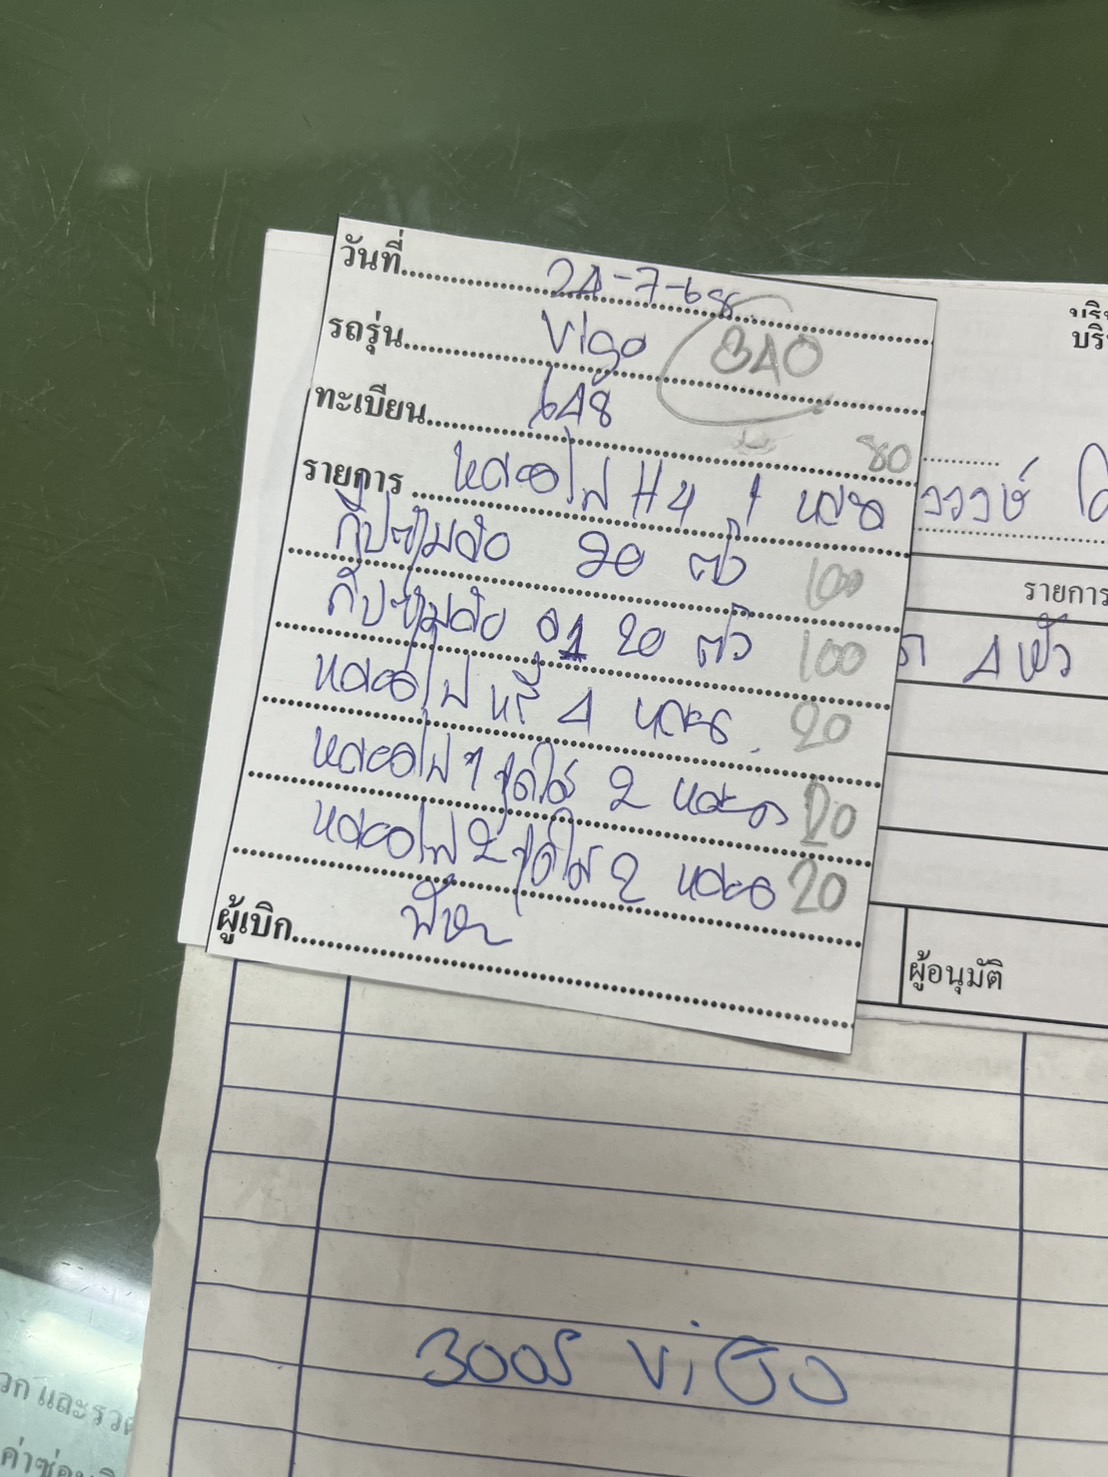 วันที่ 24-7-68
รถรุ่น Vigo 340
ทะเบียน 648
80
รายการ หลอดไฟ H4 1 หลอด
กิ๊ปซุ้มล้อ 20 ตัว 100
กิ๊ปซุ้มล้อ 01 20 ตัว 100
หลอดไฟหรี่ 4 หลอด 20
หลอดไฟ 1 จุดใส 2 หลอด 20
หลอดไฟ 2 จุดใส 2 หลอด 20
ผู้เบิก
รายการ
4 หัว
ผู้อนุมัติ
วงษ์
บริ
Vigo